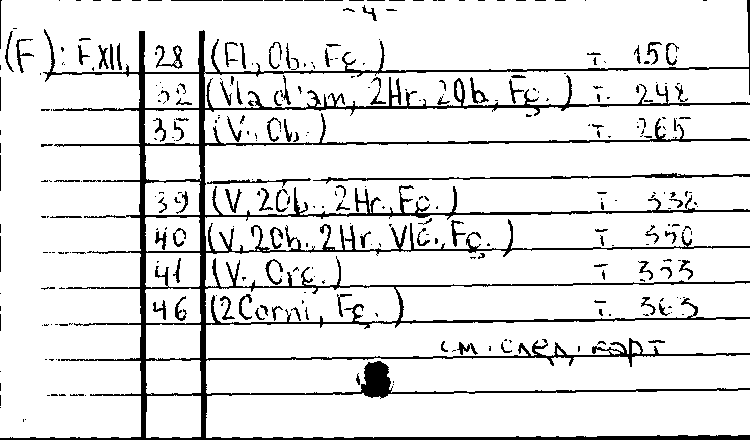 - 4 -
(F): F.XII, 28 (Fl., Ob., Fg.) т. 150
32 (Vla d'am, 2Hr, 2Ob, Fg.) т. 248
35 (V., Ob.) т. 265
39 (V, 2Ob., 2Hr., Fg.) т. 338
40 (V, 2Ob. 2Hr, Vlc., Fg.) т. 350
41 (V., Org.) т. 353
46 (2Corni, Fg.) т. 363
см. след. карт